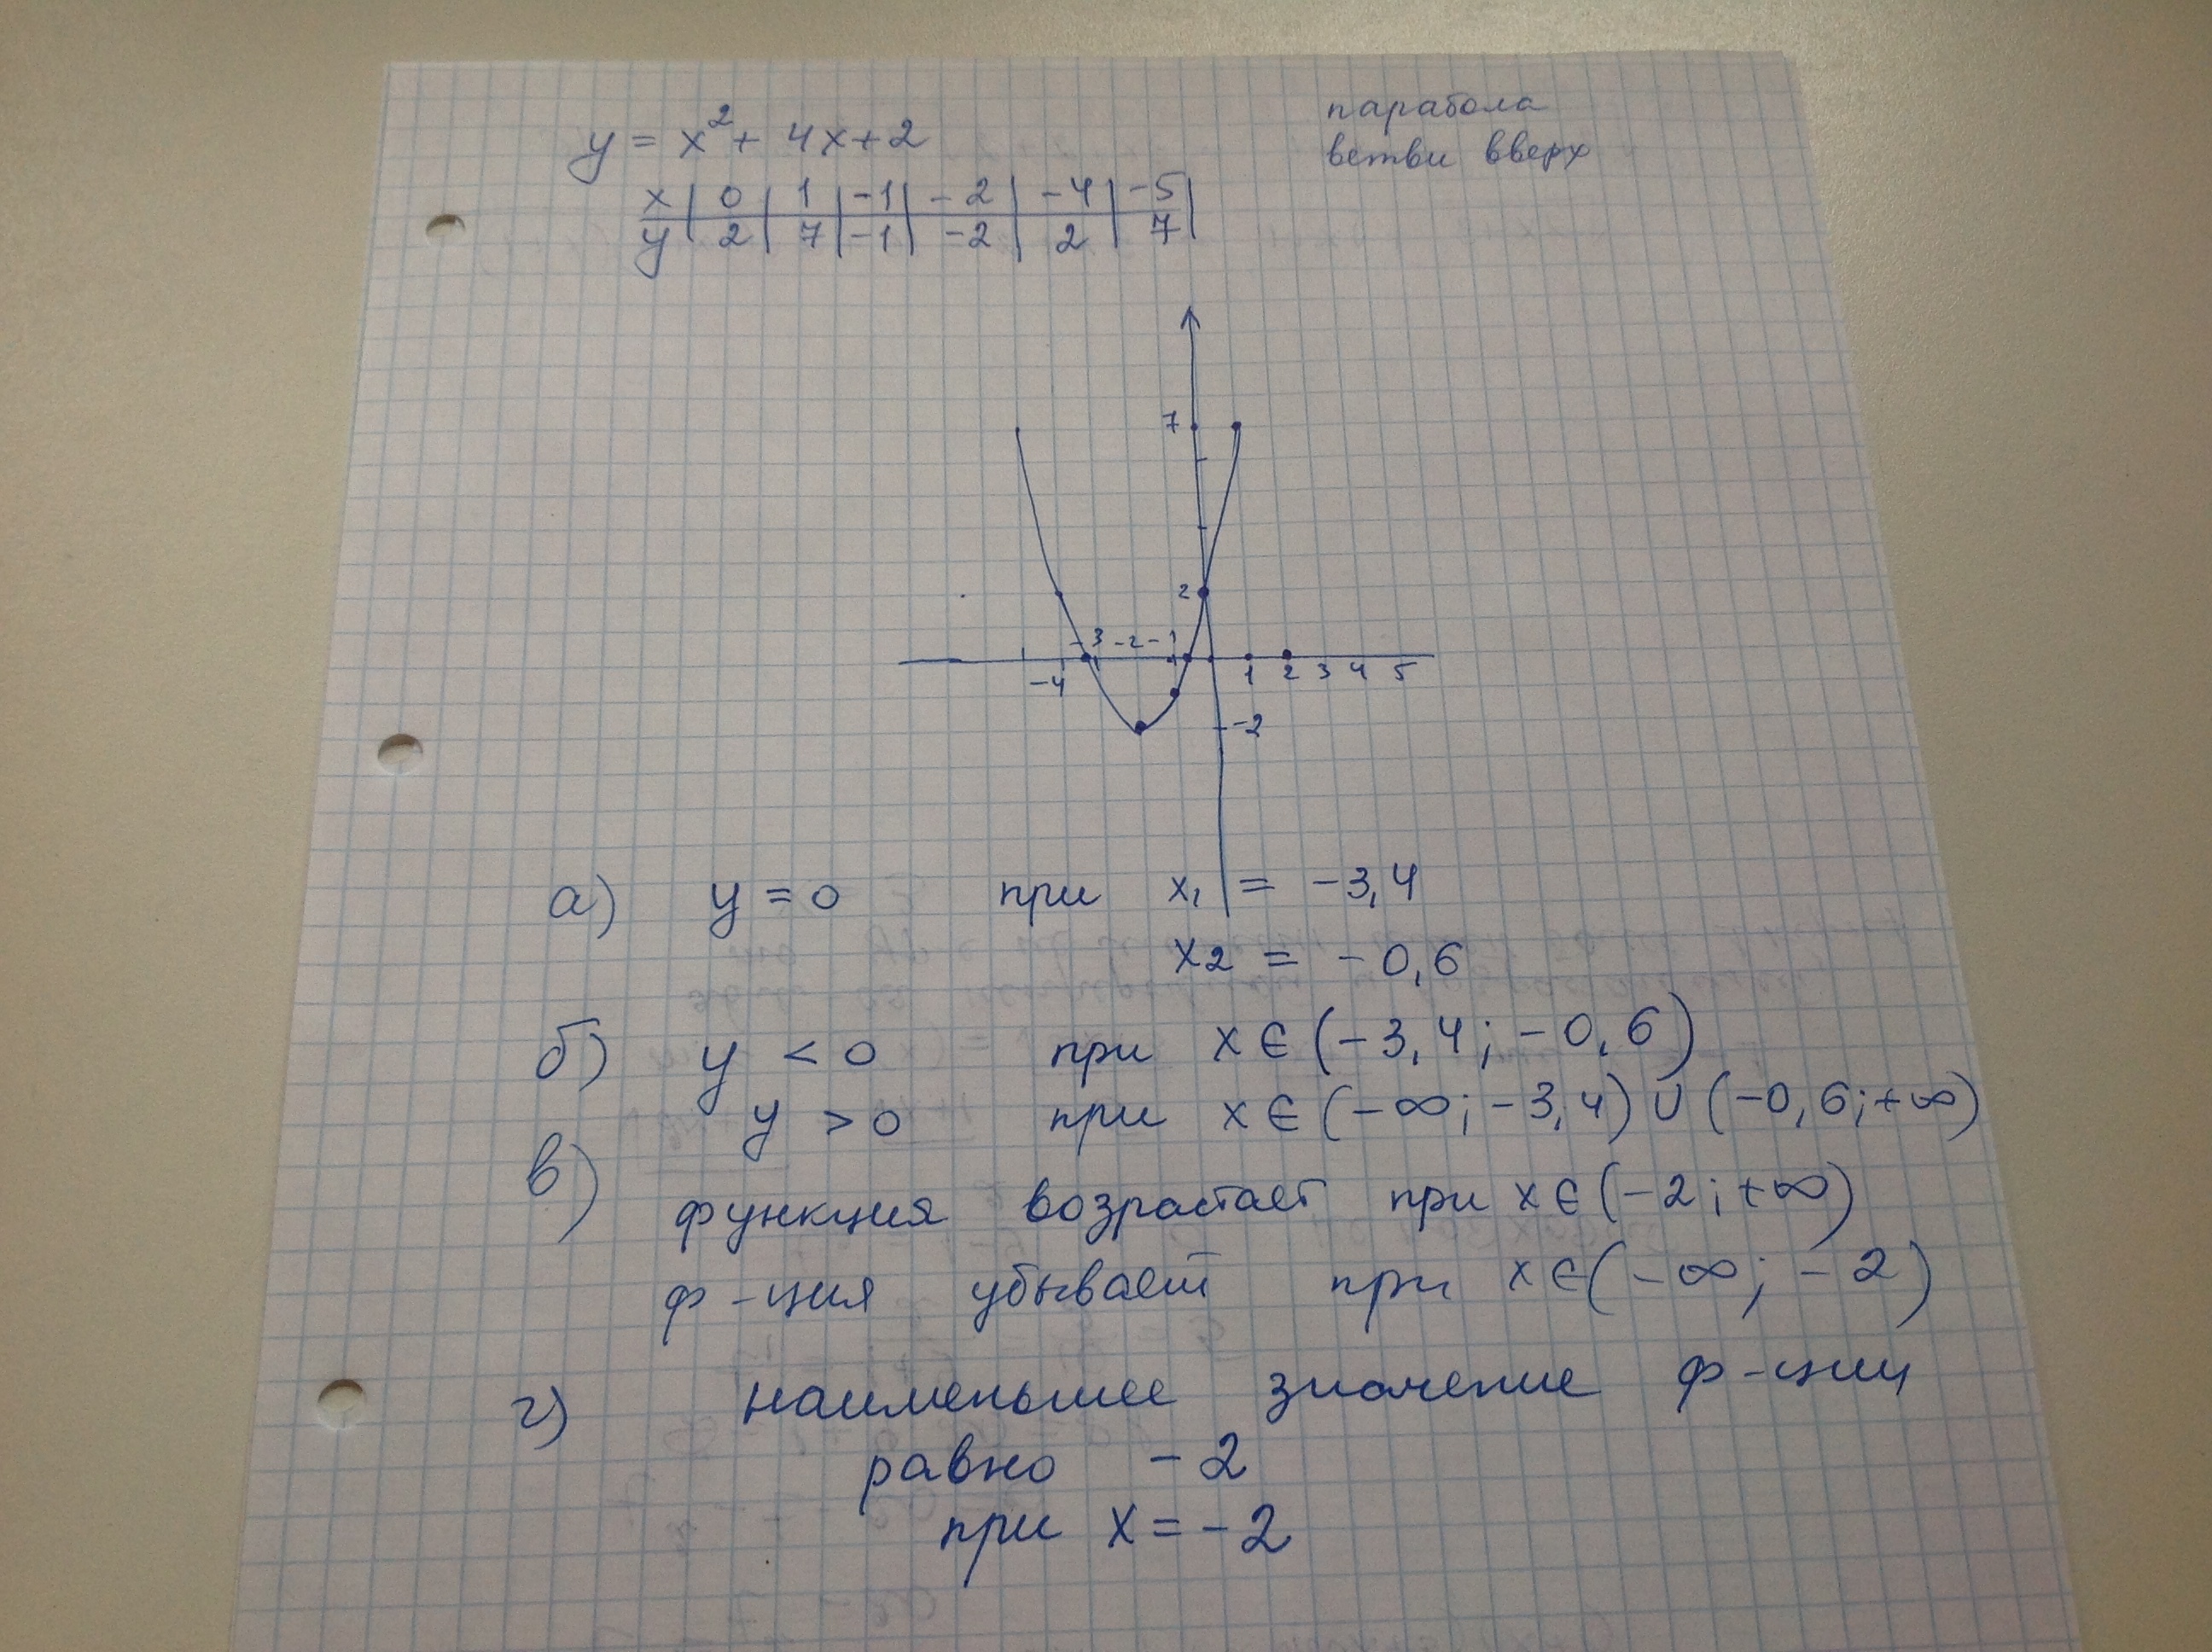 y = x² + 4x + 2
парабола
ветви вверх
x | 0 | 1 | -1 | -2 | -4 | -5 |
y | 2 | 7 | -1 | -2 | 2 | 7 |
7
2
-3 -2 -1
-4 1 2 3 4 5
-2
а) y = 0 при x₁ = -3,4
x2 = -0,6
б) y < 0 при x ∈ (-3,4; -0,6)
y > 0 при x ∈ (-∞; -3,4) ∪ (-0,6; +∞)
в)
функция возрастает при x ∈ (-2; +∞)
ф-ция убывает при x ∈ (-∞; -2)
г) наименьшее значение ф-ции
равно -2
при x = -2